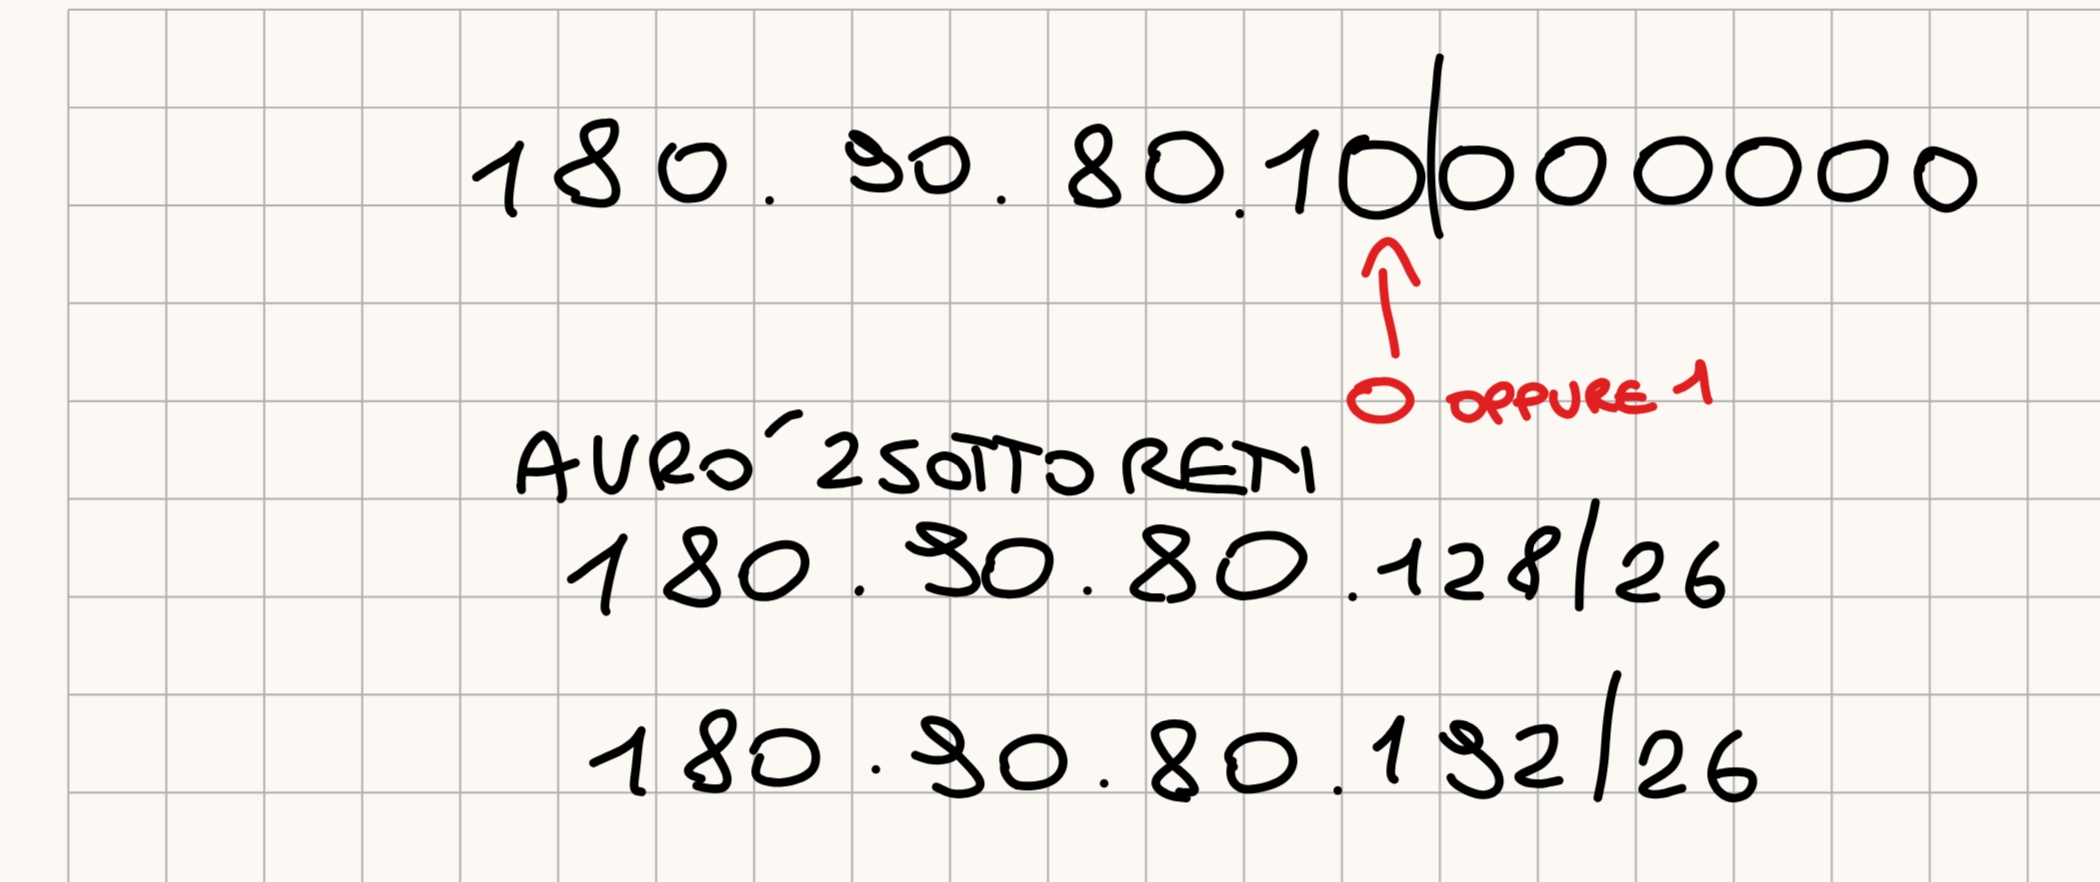 180.90.80.10|000000
0 OPPURE 1
AVRO´ 2 SOTTO RETI
180.90.80.128/26
180.90.80.192/26